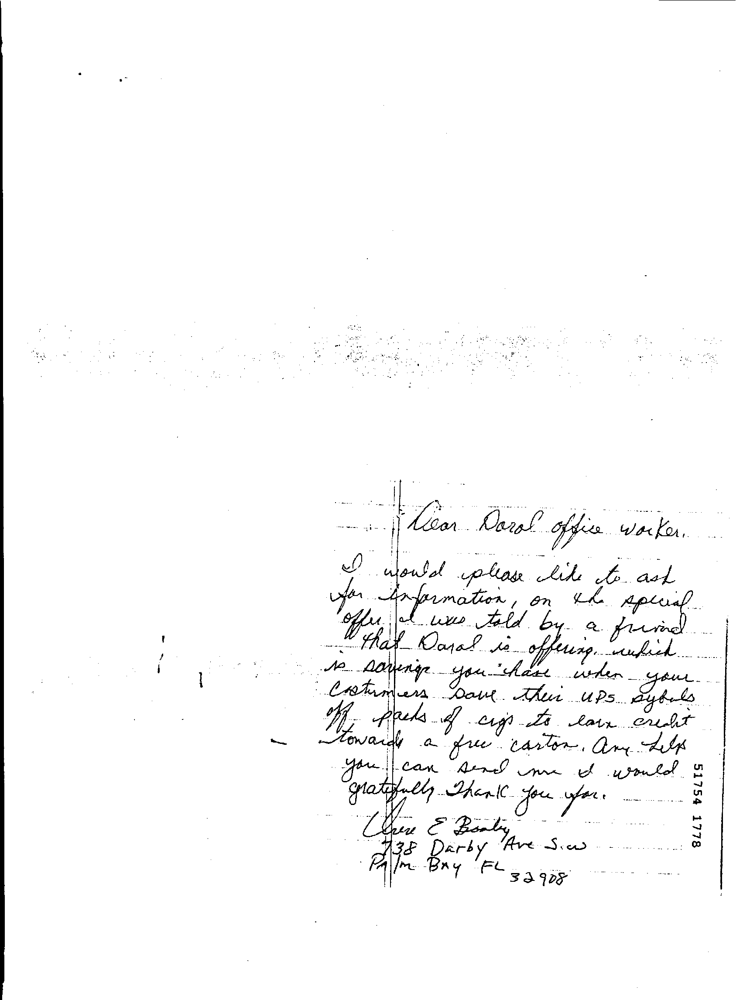 Dear Doral office worker.
I would please like to ask
for information, on the special
offer I was told by a friend
that Doral is offering. which
is savings you have when your
costumers save their UPS sybols
off packs of cigs to earn credit
towards a free carton. Any help
you can send me I would
gratefully Thank you for.
E
738 Darby Ave S.W
Palm Bay FL
32908
51754 1778